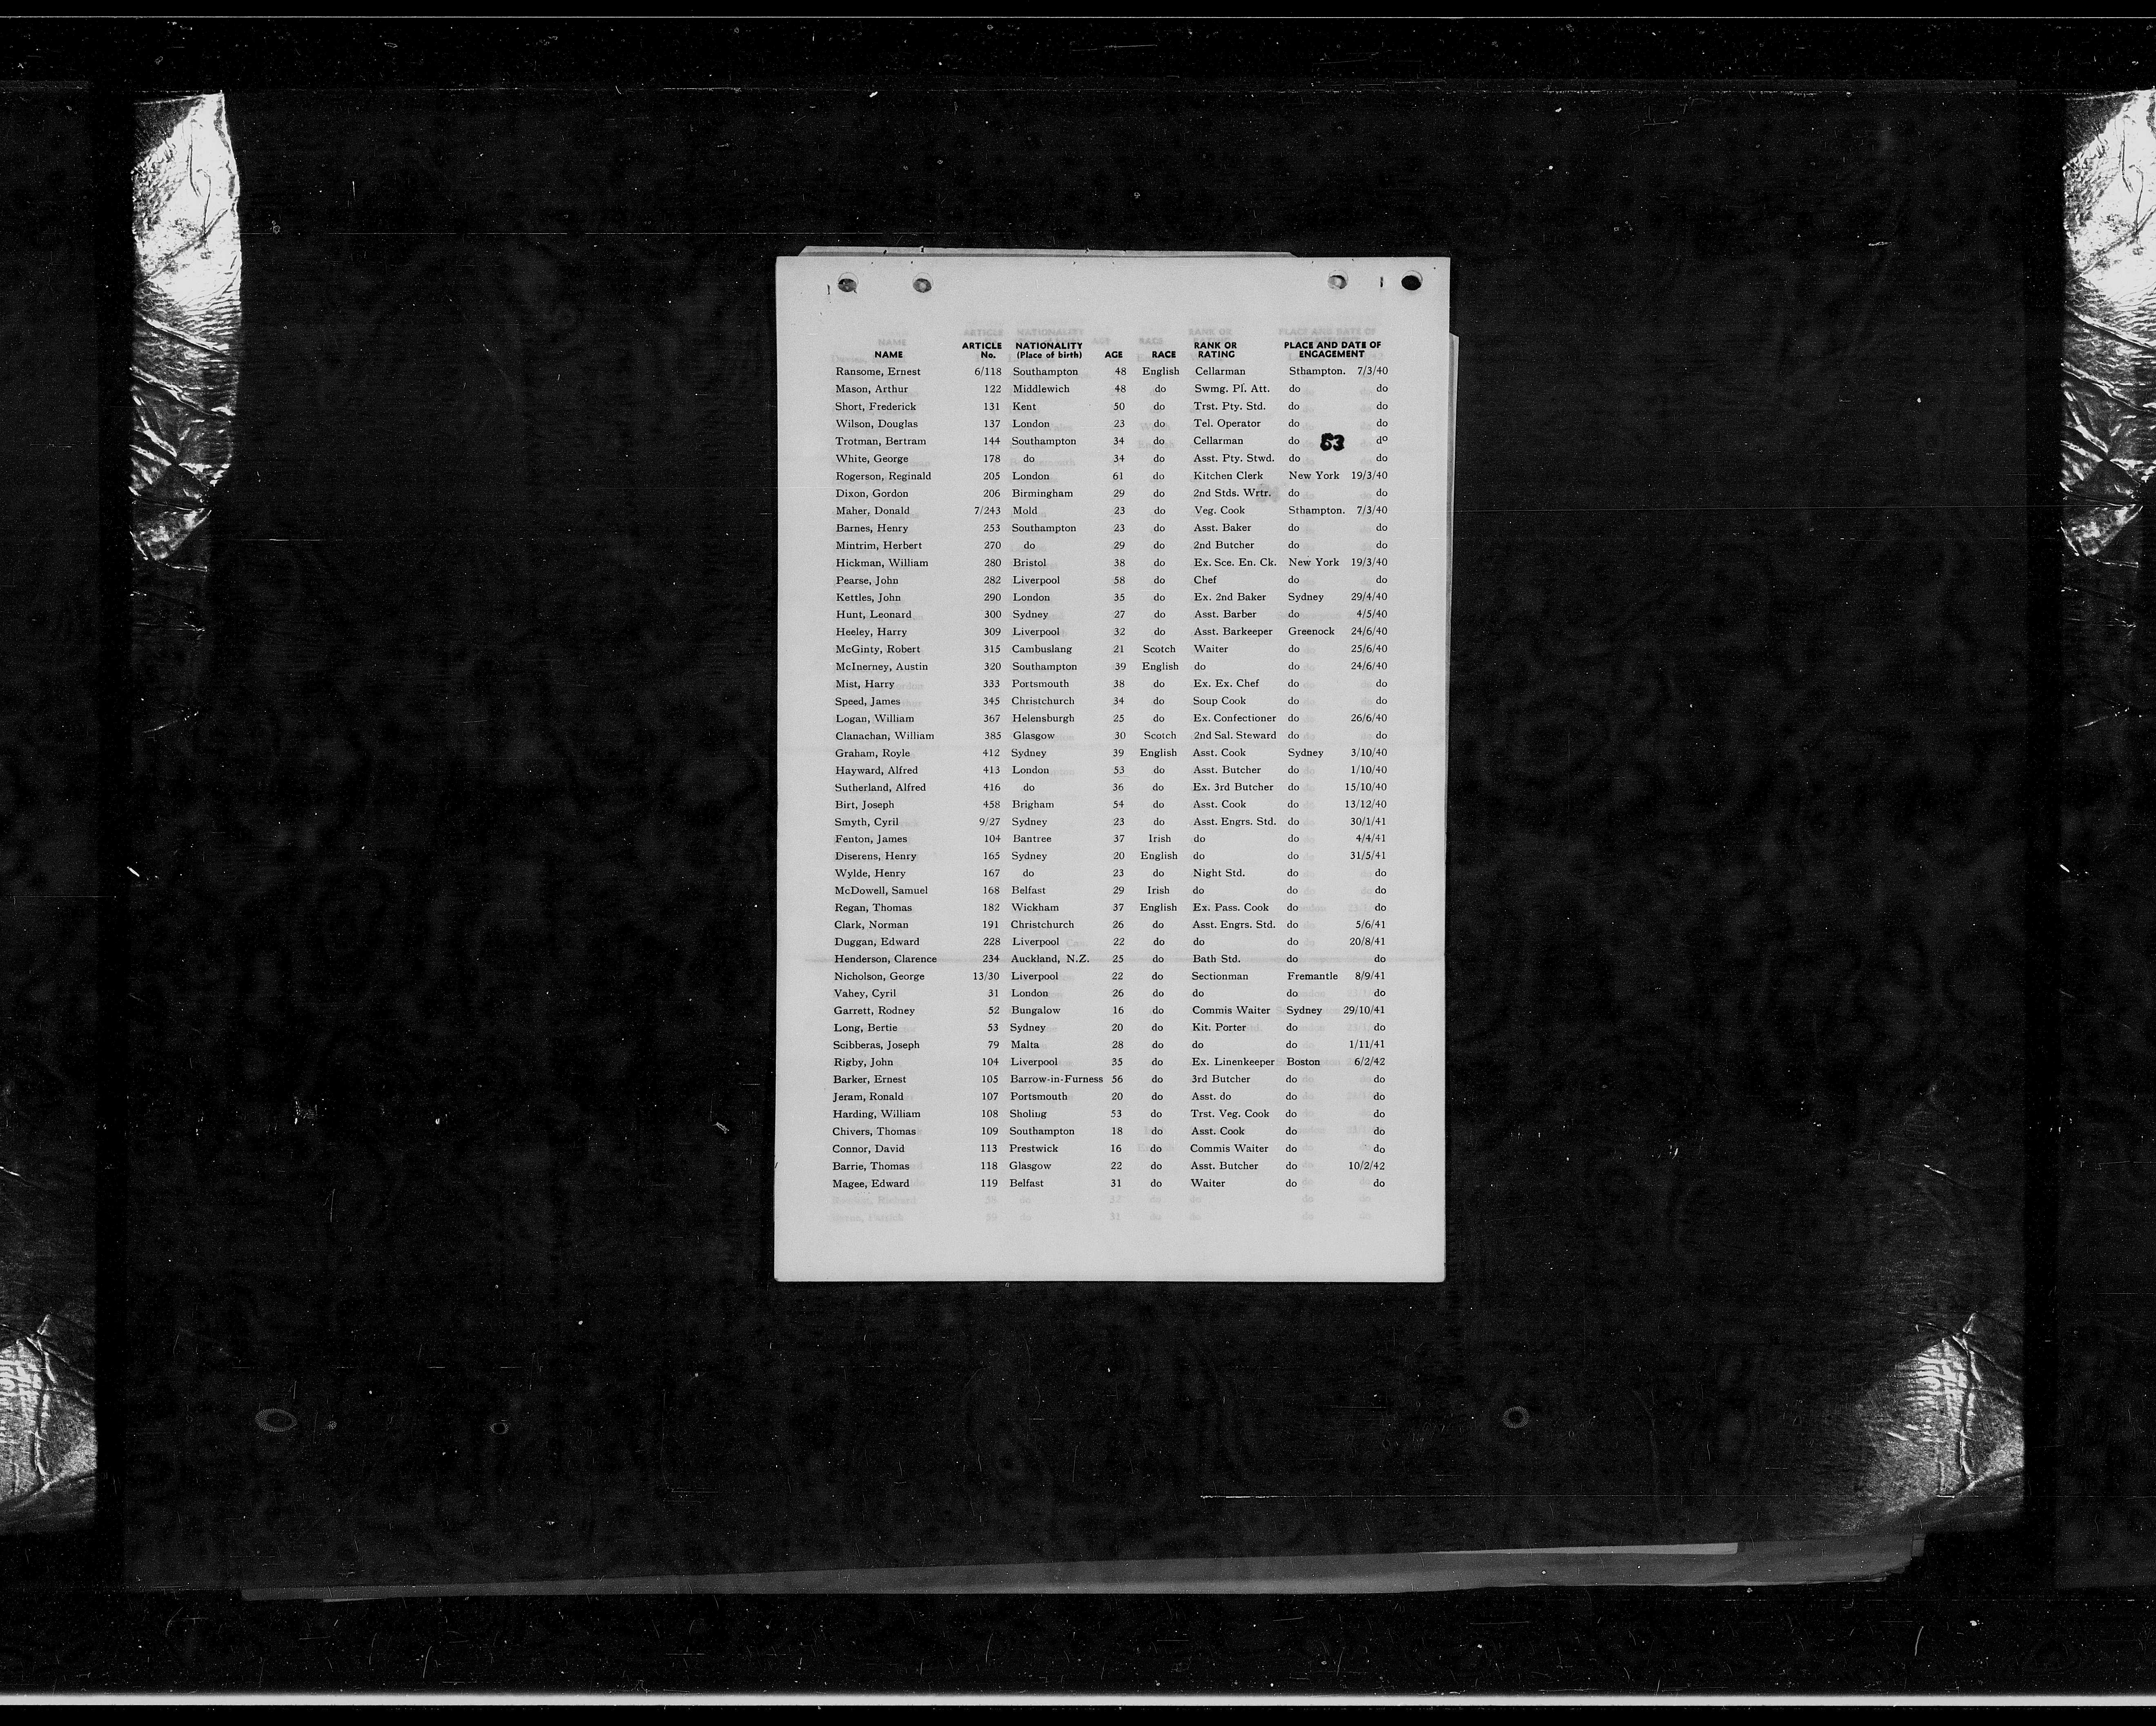 NAME ARTICLE No. NATIONALITY (Place of birth) AGE RACE RANK OR RATING PLACE AND DATE OF ENGAGEMENT
Ransome, Ernest 6/118 Southampton 48 English Cellarman Sthampton. 7/3/40
Mason, Arthur 122 Middlewich 48 do Swmg. Pl. Att. do do
Short, Frederick 131 Kent 50 do Trst. Pty. Std. do do
Wilson, Douglas 137 London 23 do Tel. Operator do do
Trotman, Bertram 144 Southampton 34 do Cellarman do 53 do
White, George 178 do 34 do Asst. Pty. Stwd. do do
Rogerson, Reginald 205 London 61 do Kitchen Clerk New York 19/3/40
Dixon, Gordon 206 Birmingham 29 do 2nd Stds. Wrtr. do do
Maher, Donald 7/243 Mold 23 do Veg. Cook Sthampton. 7/3/40
Barnes, Henry 253 Southampton 23 do Asst. Baker do do
Mintrim, Herbert 270 do 29 do 2nd Butcher do do
Hickman, William 280 Bristol 38 do Ex. Sce. En. Ck. New York 19/3/40
Pearse, John 282 Liverpool 58 do Chef do do
Kettles, John 290 London 35 do Ex. 2nd Baker Sydney 29/4/40
Hunt, Leonard 300 Sydney 27 do Asst. Barber do 4/5/40
Heeley, Harry 309 Liverpool 32 do Asst. Barkeeper Greenock 24/6/40
McGinty, Robert 315 Cambuslang 21 Scotch Waiter do 25/6/40
McInerney, Austin 320 Southampton 39 English do do 24/6/40
Mist, Harry 333 Portsmouth 38 do Ex. Ex. Chef do do
Speed, James 345 Christchurch 34 do Soup Cook do do
Logan, William 367 Helensburgh 25 do Ex. Confectioner do 26/6/40
Clanachan, William 385 Glasgow 30 Scotch 2nd Sal. Steward do do
Graham, Royle 412 Sydney 39 English Asst. Cook Sydney 3/10/40
Hayward, Alfred 413 London 53 do Asst. Butcher do 1/10/40
Sutherland, Alfred 416 do 36 do Ex. 3rd Butcher do 15/10/40
Birt, Joseph 458 Brigham 54 do Asst. Cook do 13/12/40
Smyth, Cyril 9/27 Sydney 23 do Asst. Engrs. Std. do 30/1/41
Fenton, James 104 Bantree 37 Irish do do 4/4/41
Diserens, Henry 165 Sydney 20 English do do 31/5/41
Wylde, Henry 167 do 23 do Night Std. do do
McDowell, Samuel 168 Belfast 29 Irish do do do
Regan, Thomas 182 Wickham 37 English Ex. Pass. Cook do do
Clark, Norman 191 Christchurch 26 do Asst. Engrs. Std. do 5/6/41
Duggan, Edward 228 Liverpool 22 do do do 20/8/41
Henderson, Clarence 234 Auckland, N.Z. 25 do Bath Std. do do
Nicholson, George 13/30 Liverpool 22 do Sectionman Fremantle 8/9/41
Vahey, Cyril 31 London 26 do do do do
Garrett, Rodney 52 Bungalow 16 do Commis Waiter Sydney 29/10/41
Long, Bertie 53 Sydney 20 do Kit. Porter do do
Scibberas, Joseph 79 Malta 28 do do do 1/11/41
Rigby, John 104 Liverpool 35 do Ex. Linenkeeper Boston 6/2/42
Barker, Ernest 105 Barrow-in-Furness 56 do 3rd Butcher do do
Jeram, Ronald 107 Portsmouth 20 do Asst. do do do
Harding, William 108 Sholing 53 do Trst. Veg. Cook do do
Chivers, Thomas 109 Southampton 18 do Asst. Cook do do
Connor, David 113 Prestwick 16 do Commis Waiter do do
Barrie, Thomas 118 Glasgow 22 do Asst. Butcher do 10/2/42
Magee, Edward 119 Belfast 31 do Waiter do do